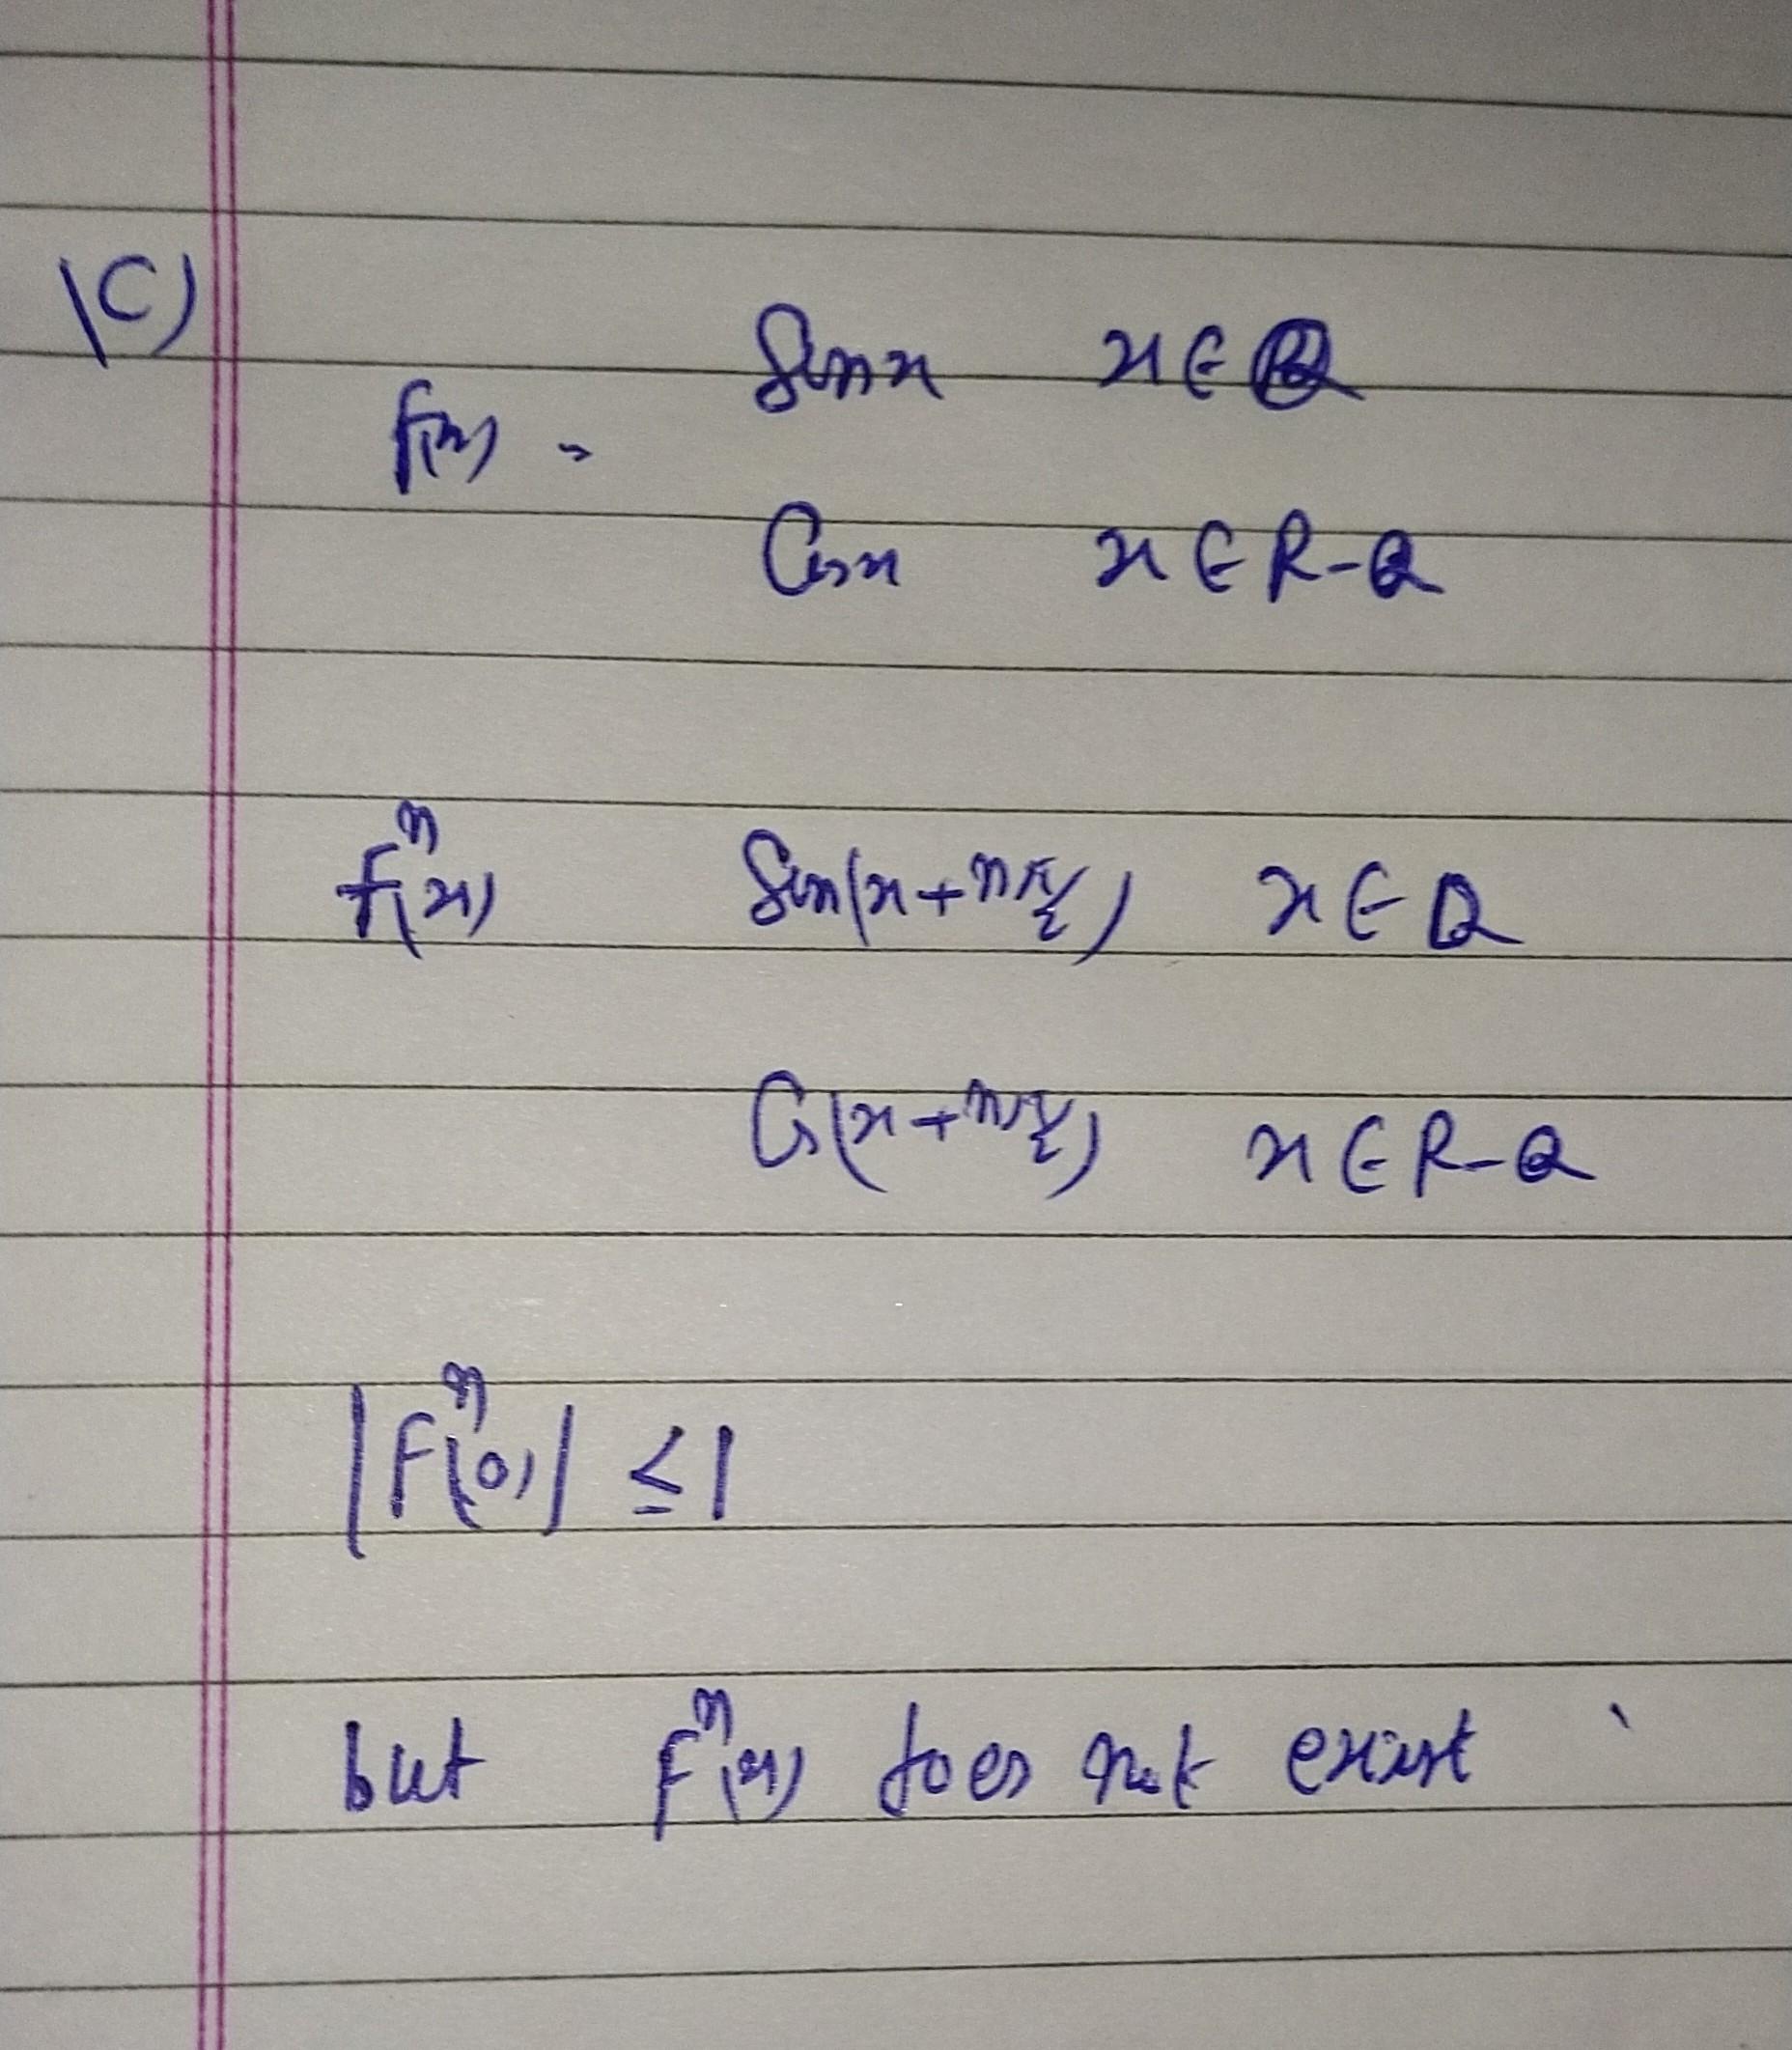 1C)
Sinx x ∈ Q
f(x) =
Cosx x ∈ R-Q
fⁿ(x) Sin(x + nπ/2) x ∈ Q
Cos(x + nπ/2) x ∈ R-Q
|Fⁿ(0)| ≤ 1
but Fⁿ(x) does not exist